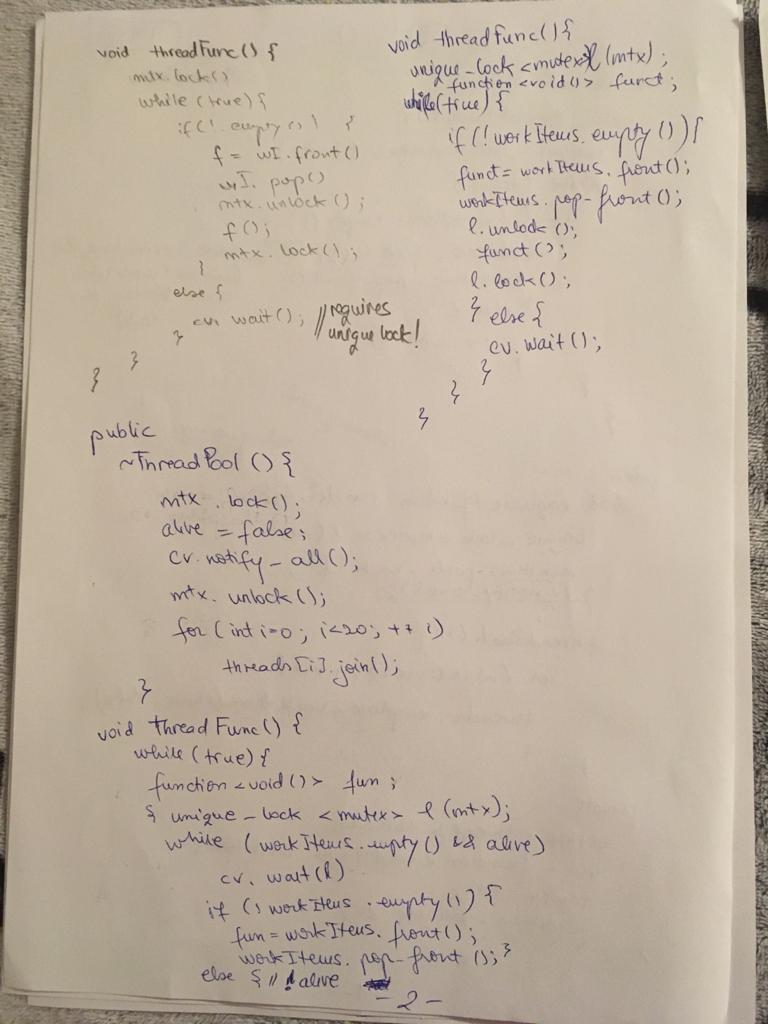 void threadFunc() {
mtx.lock()
while (true) {
if (! empty()) {
f = wI.front()
wI. pop()
mtx.unlock();
f();
mtx.lock();
}
else {
cv. wait(); // requires
unique lock!
}
}
}
void threadFunc() {
unique_lock <mutex> l (mtx);
function <void()> funct;
while(true) {
if (! workItems. empty()) {
funct = workItems. front();
workItems. pop-front();
l. unlock ();
funct();
l. lock();
} else {
cv. wait();
}
}
}
public
~ThreadPool () {
mtx . lock();
alive = false;
cv. notify_all();
mtx. unlock();
for (int i=0; i<20; ++i)
threads [i]. join();
}
void threadFunc() {
while (true) {
function <void()> fun ;
{ unique_lock <mutex> l (mtx);
while (workItems. empty() && alive)
cv. wait(l)
if (! workItems . empty()) {
fun = workItems. front();
workItems. pop-front (); }
else { // ! alive
- 2 -